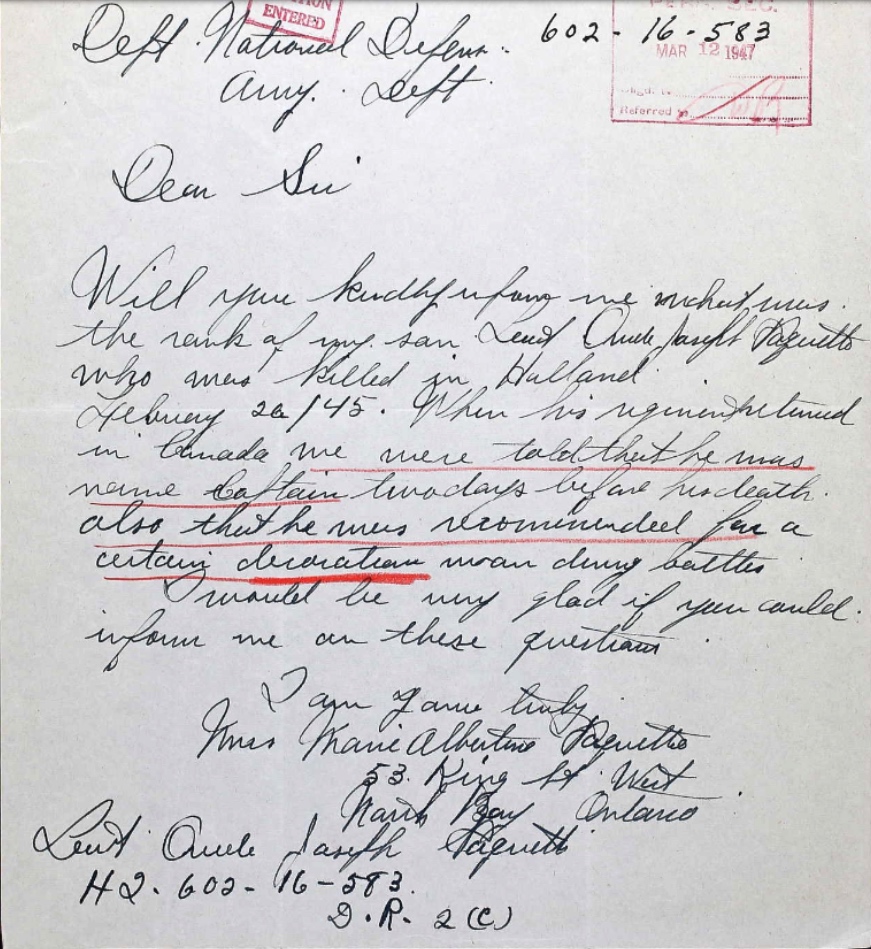 ENTERED
MAR 12 1947
Referred
Dept. National Defense. 602-16-583
Army. Dept.
Dear Sir
Will you kindly inform me what was
the rank of my son Leut Joseph Paquette
who was killed in Holland
February 26/45. When his regiment returned
in Canada we were told that he was
name Captain two days before his death.
also that he was recommended for a
certain decoration won during battles
I would be very glad if you could
inform me on these questions
I am yours truly
Mrs Marie Albertine Paquette
53. King St. West
North Bay Ontario
Leut Joseph Paquette
HQ. 602-16-583.
D.R. 2(C)